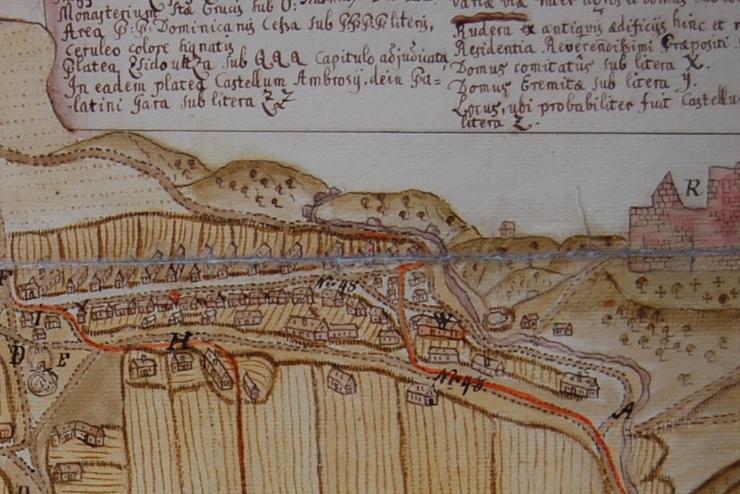 Monasterium Stæ Crucis sub O.
Area P. P. Dominicanis Cessa sub PPPP literis,
Ceruleo colore signatis
Platea Zsido uttza sub AAA Capitulo adjudicata
In eadem platea Castellum Ambrosij, dein Pa=
latini Gara sub litera ZZ
Rudera ex antiquis ædificijs hinc et
Residentia Reverendissimi Præpositi
Domus comitatus sub litera X.
Domus Eremitæ sub litera Y.
Locus, ubi probabiliter fuit Castellu
litera Z.
R
No 48
F
I
H
W
D
E
No 48
A